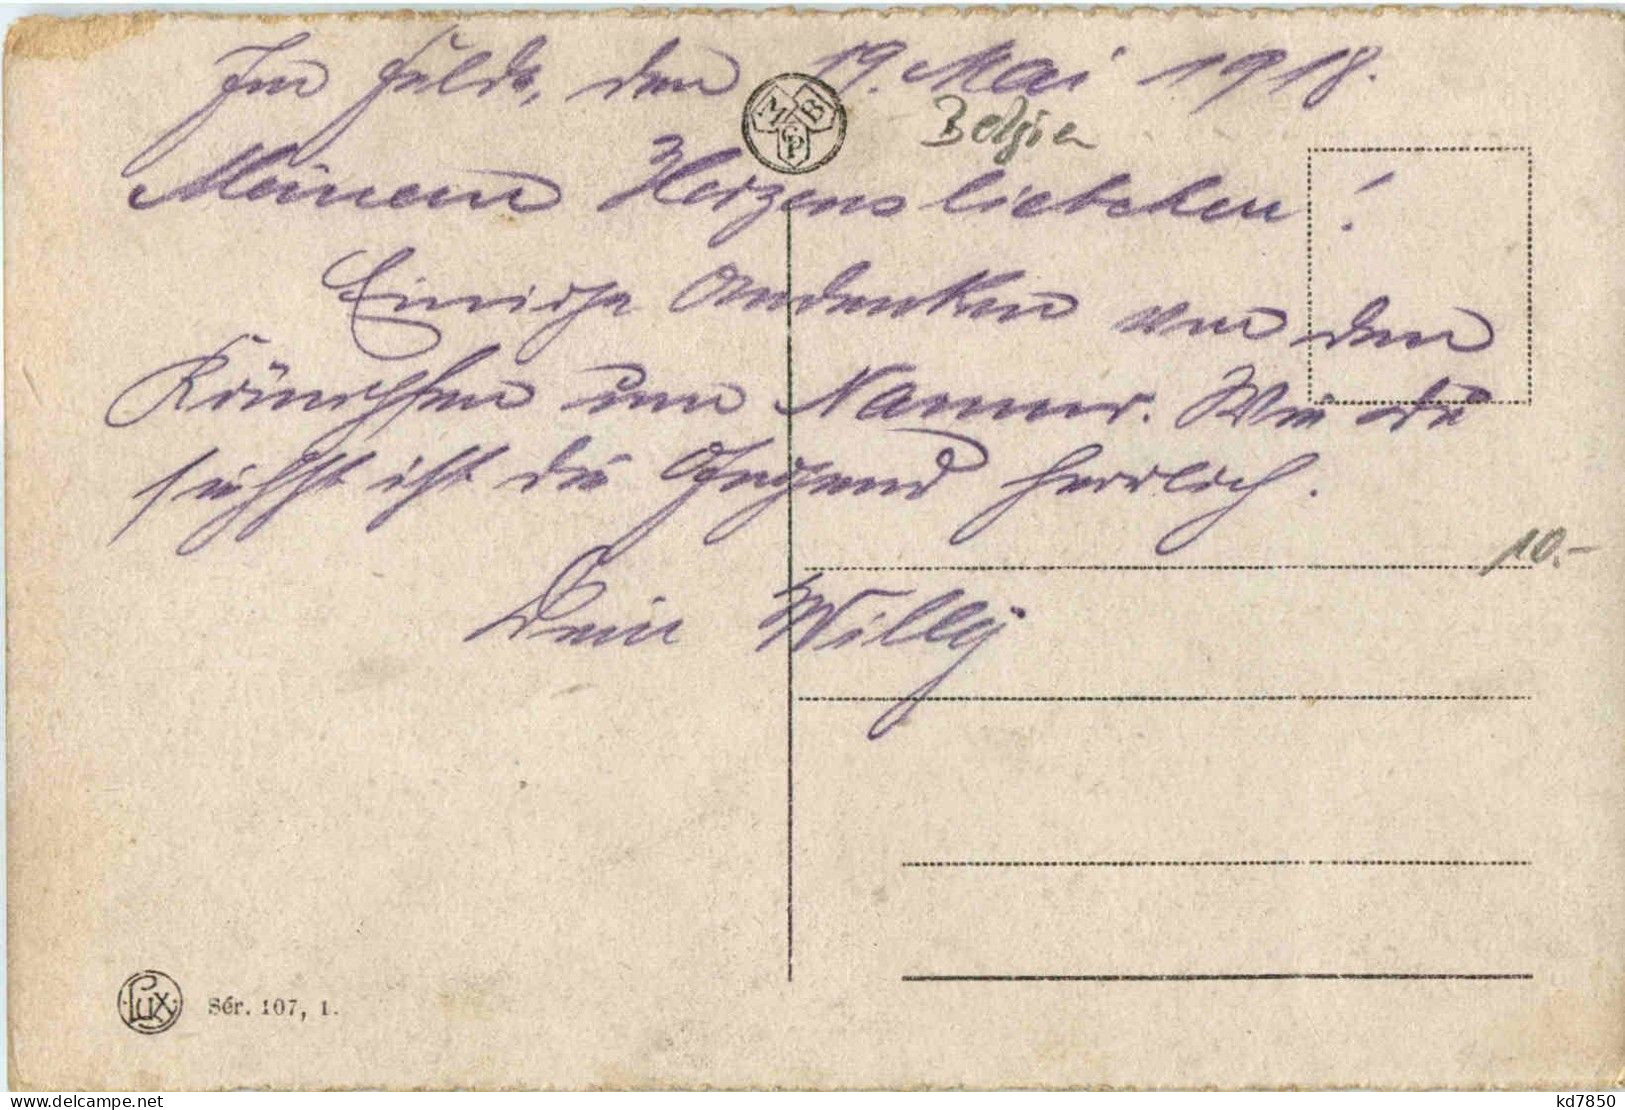 Im Felde, den 19. Mai 1918.
M B
C P
Belgien
Meinem Herzensliebchen!
Einige Andenken von den
Kämpfen um Namur. Wie du
siehst ist die Gegend herrlich.
10.-
Dein Willy
Lux Sér. 107, 1.
delcampe.net
kd7850